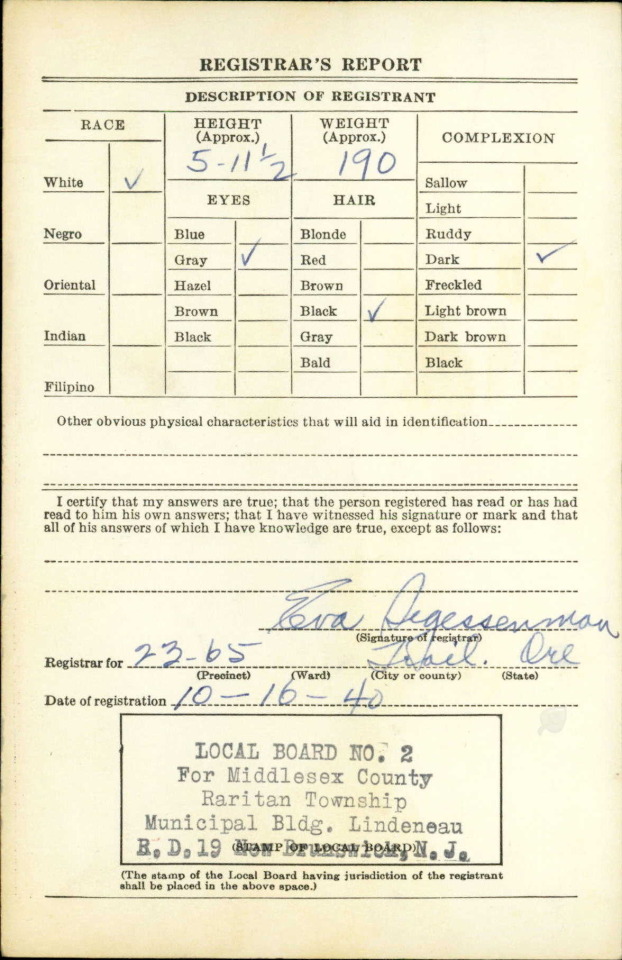 REGISTRAR'S REPORT
DESCRIPTION OF REGISTRANT
RACE
HEIGHT
(Approx.)
WEIGHT
(Approx.)
COMPLEXION
5-11½
190
White ✓
Negro
Oriental
Indian
Filipino
EYES
Blue
Gray ✓
Hazel
Brown
Black
HAIR
Blonde
Red
Brown
Black ✓
Gray
Bald
Sallow
Light
Ruddy
Dark ✓
Freckled
Light brown
Dark brown
Black
Other obvious physical characteristics that will aid in identification
I certify that my answers are true; that the person registered has read or has had
read to him his own answers; that I have witnessed his signature or mark and that
all of his answers of which I have knowledge are true, except as follows:
Eva Segessenman
(Signature of registrar)
Registrar for 23-65 Ore
(Precinct) (Ward) (City or county) (State)
Date of registration 10-16-40
LOCAL BOARD NO. 2
For Middlesex County
Raritan Township
Municipal Bldg. Lindeneau
R.D.19 New Brunswick, N.J.
(STAMP OF LOCAL BOARD)
(The stamp of the Local Board having jurisdiction of the registrant
shall be placed in the above space.)